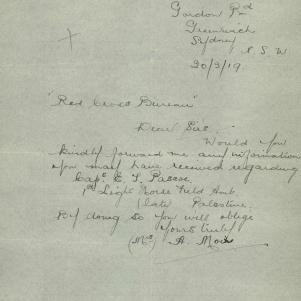 Gordon Rd
Greenwich
Sydney
N.S.W
20/3/19.
"Red Cross Bureau"
Dear Sir.
Would you
kindly forward me any information
you may have received regarding
Capt E. T. Pascoe.
1st Light Horse Field Amb.
(late Palestine.
By doing so you will oblige
Yours truly
(Mrs) A.